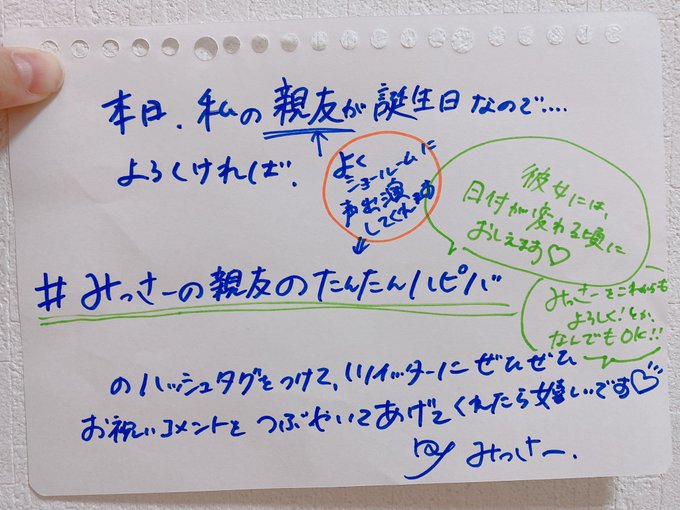 本日、私の親友が誕生日なので....
よろしければ、
よく
ショールームに
声出演
してくれます
彼女には、
日付が変わる頃に
おしえます♡
#みっさーの親友のたんたんハピバ
みっさーをこれからも
よろしく!とか、
なんでもOK!!
のハッシュタグをつけて、ツイッターにぜひぜひ
お祝いコメントを つぶやいてあげてくれたら嬉しいです♡
みっさー.